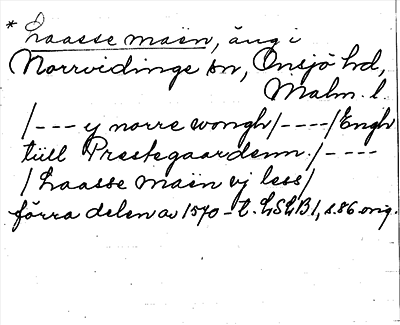 * Laasse maën, äng i
Norrvidinge sn, Onsjö hd,
Malm. l.
/--- y norre wongh/----/Engh
tiill Prestegaardenn:/----
/ Laasse maën vj less/
förra delen av 1570-t. LSLB1, s. 86 orig.